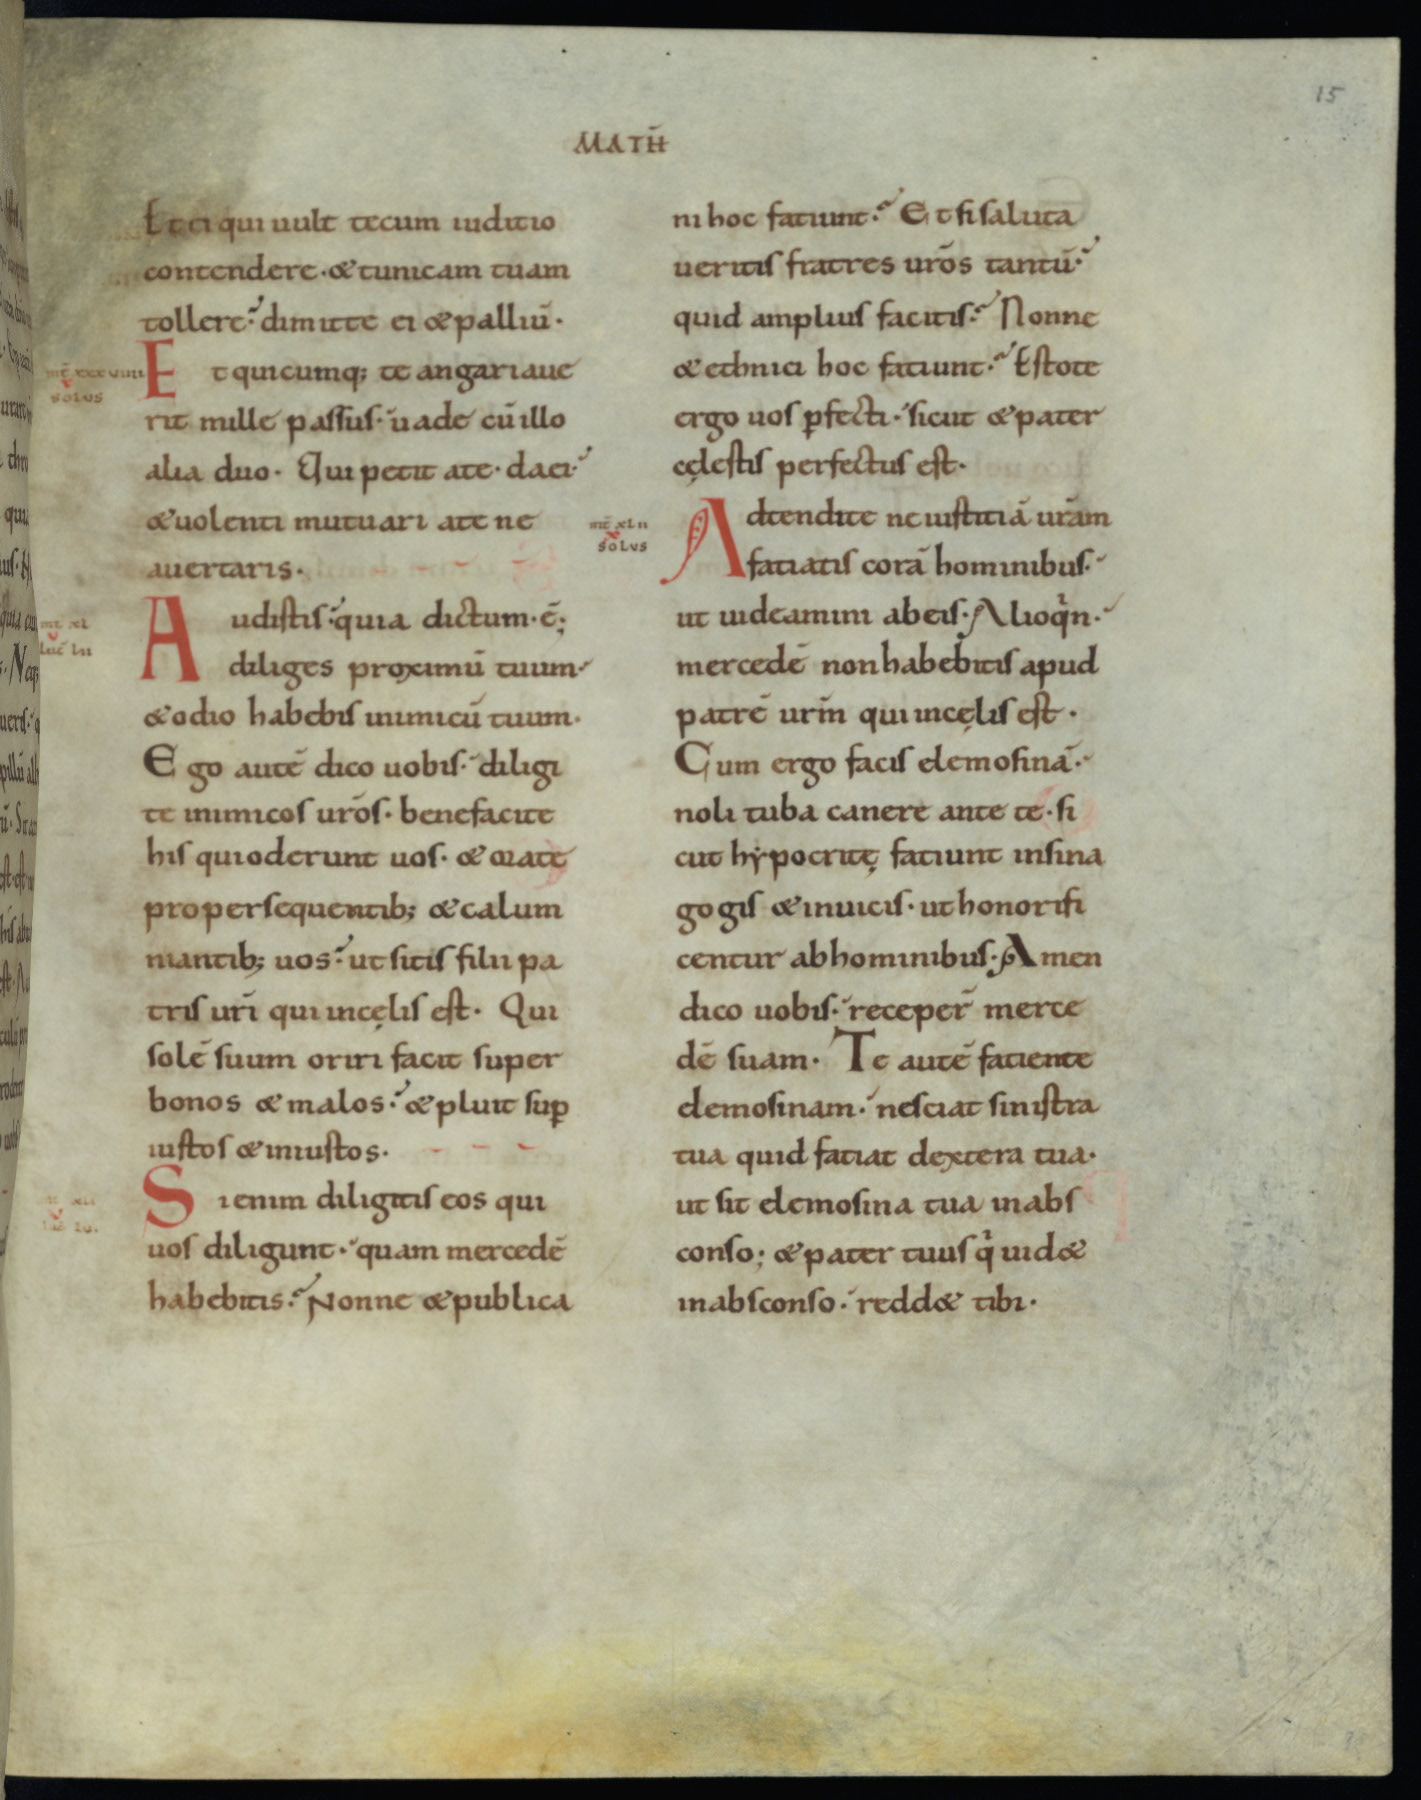 15
MATH̄
Et ei qui uult tecum iuditio
contendere · & tunicam tuam
tollere · dimitte ei & palliū ·
mt̄ xxxviiii
solus
Et quicumq; te angariaue
rit mille passus · uade cū illo
alia duo · Qui petit a te · da ei ·
& uolenti mutuari a te ne
auertaris ·
mt̄ xl
luc̄ lii
Audistis · quia dictum · ē;
diliges proximū tuum ·
& odio habebis inimicū tuum ·
Ego autē dico uobis · diligi
te inimicos urōs · benefacite
his qui oderunt uos · & orate
pro persequentib; & calum
niantib; uos · ut sitis filii pa
tris urī qui in cęlis est · Qui
solē suum oriri facit super
bonos & malos · & pluit suꝑ
iustos & iniustos ·
Si enim diligitis eos qui
uos diligunt · quam mercedē
habebitis · Nonne & publica
ni hoc fatiunt · Et si saluta
ueritis fratres urōs tantū ·
quid amplius facitis · Nonne
& ethnici hoc fatiunt · Estote
ergo uos ꝑfecti · sicut & pater
cęlestis perfectus est ·
mt̄ xlii
solus
Adtendite ne iustitiā urām
fatiatis corā hominibus ·
ut uideamini ab eis · Alioqͥn ·
mercedē non habebitis apud
patrē urm̄ qui in cęlis est ·
Cum ergo facis elemosinā ·
noli tuba canere ante te · si
cut hẏpocritę fatiunt in sina
gogis & in uicis · ut honorifi
centur ab hominibus · Amen
dico uobis · receper̄ merce
dē suam · Te autē fatiente
elemosinam · nesciat sinistra
tua quid fatiat dextera tua ·
ut sit elemosina tua in abs
conso; & pater tuus qͥ uid&
in absconso · redd& tibi ·